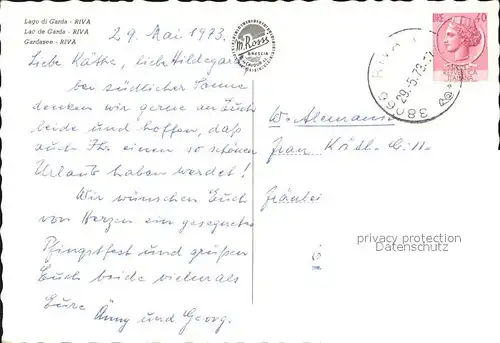 Lago di Garda - RIVA
Lac de Garda - RIVA
Gardasee - RIVA
29. Mai 1973.
Liebe Käthe, liebe Hildegard
bei südlicher Sonne
denken wir gerne an Euch
beide und hoffen, daß
auch Ihr einen so schönen
Urlaub haben werdet!
Wir wünschen Euch
von Herzen ein gesegnetes
Pfingstfest und grüßen
Euch beide vielmals
Eure Änny und Georg.
Rossi
BRESCIA
38066 RIVA
29.-5.73
LIRE 40
W. Alemania
Frau
Fräulei
privacy protection
Datenschutz